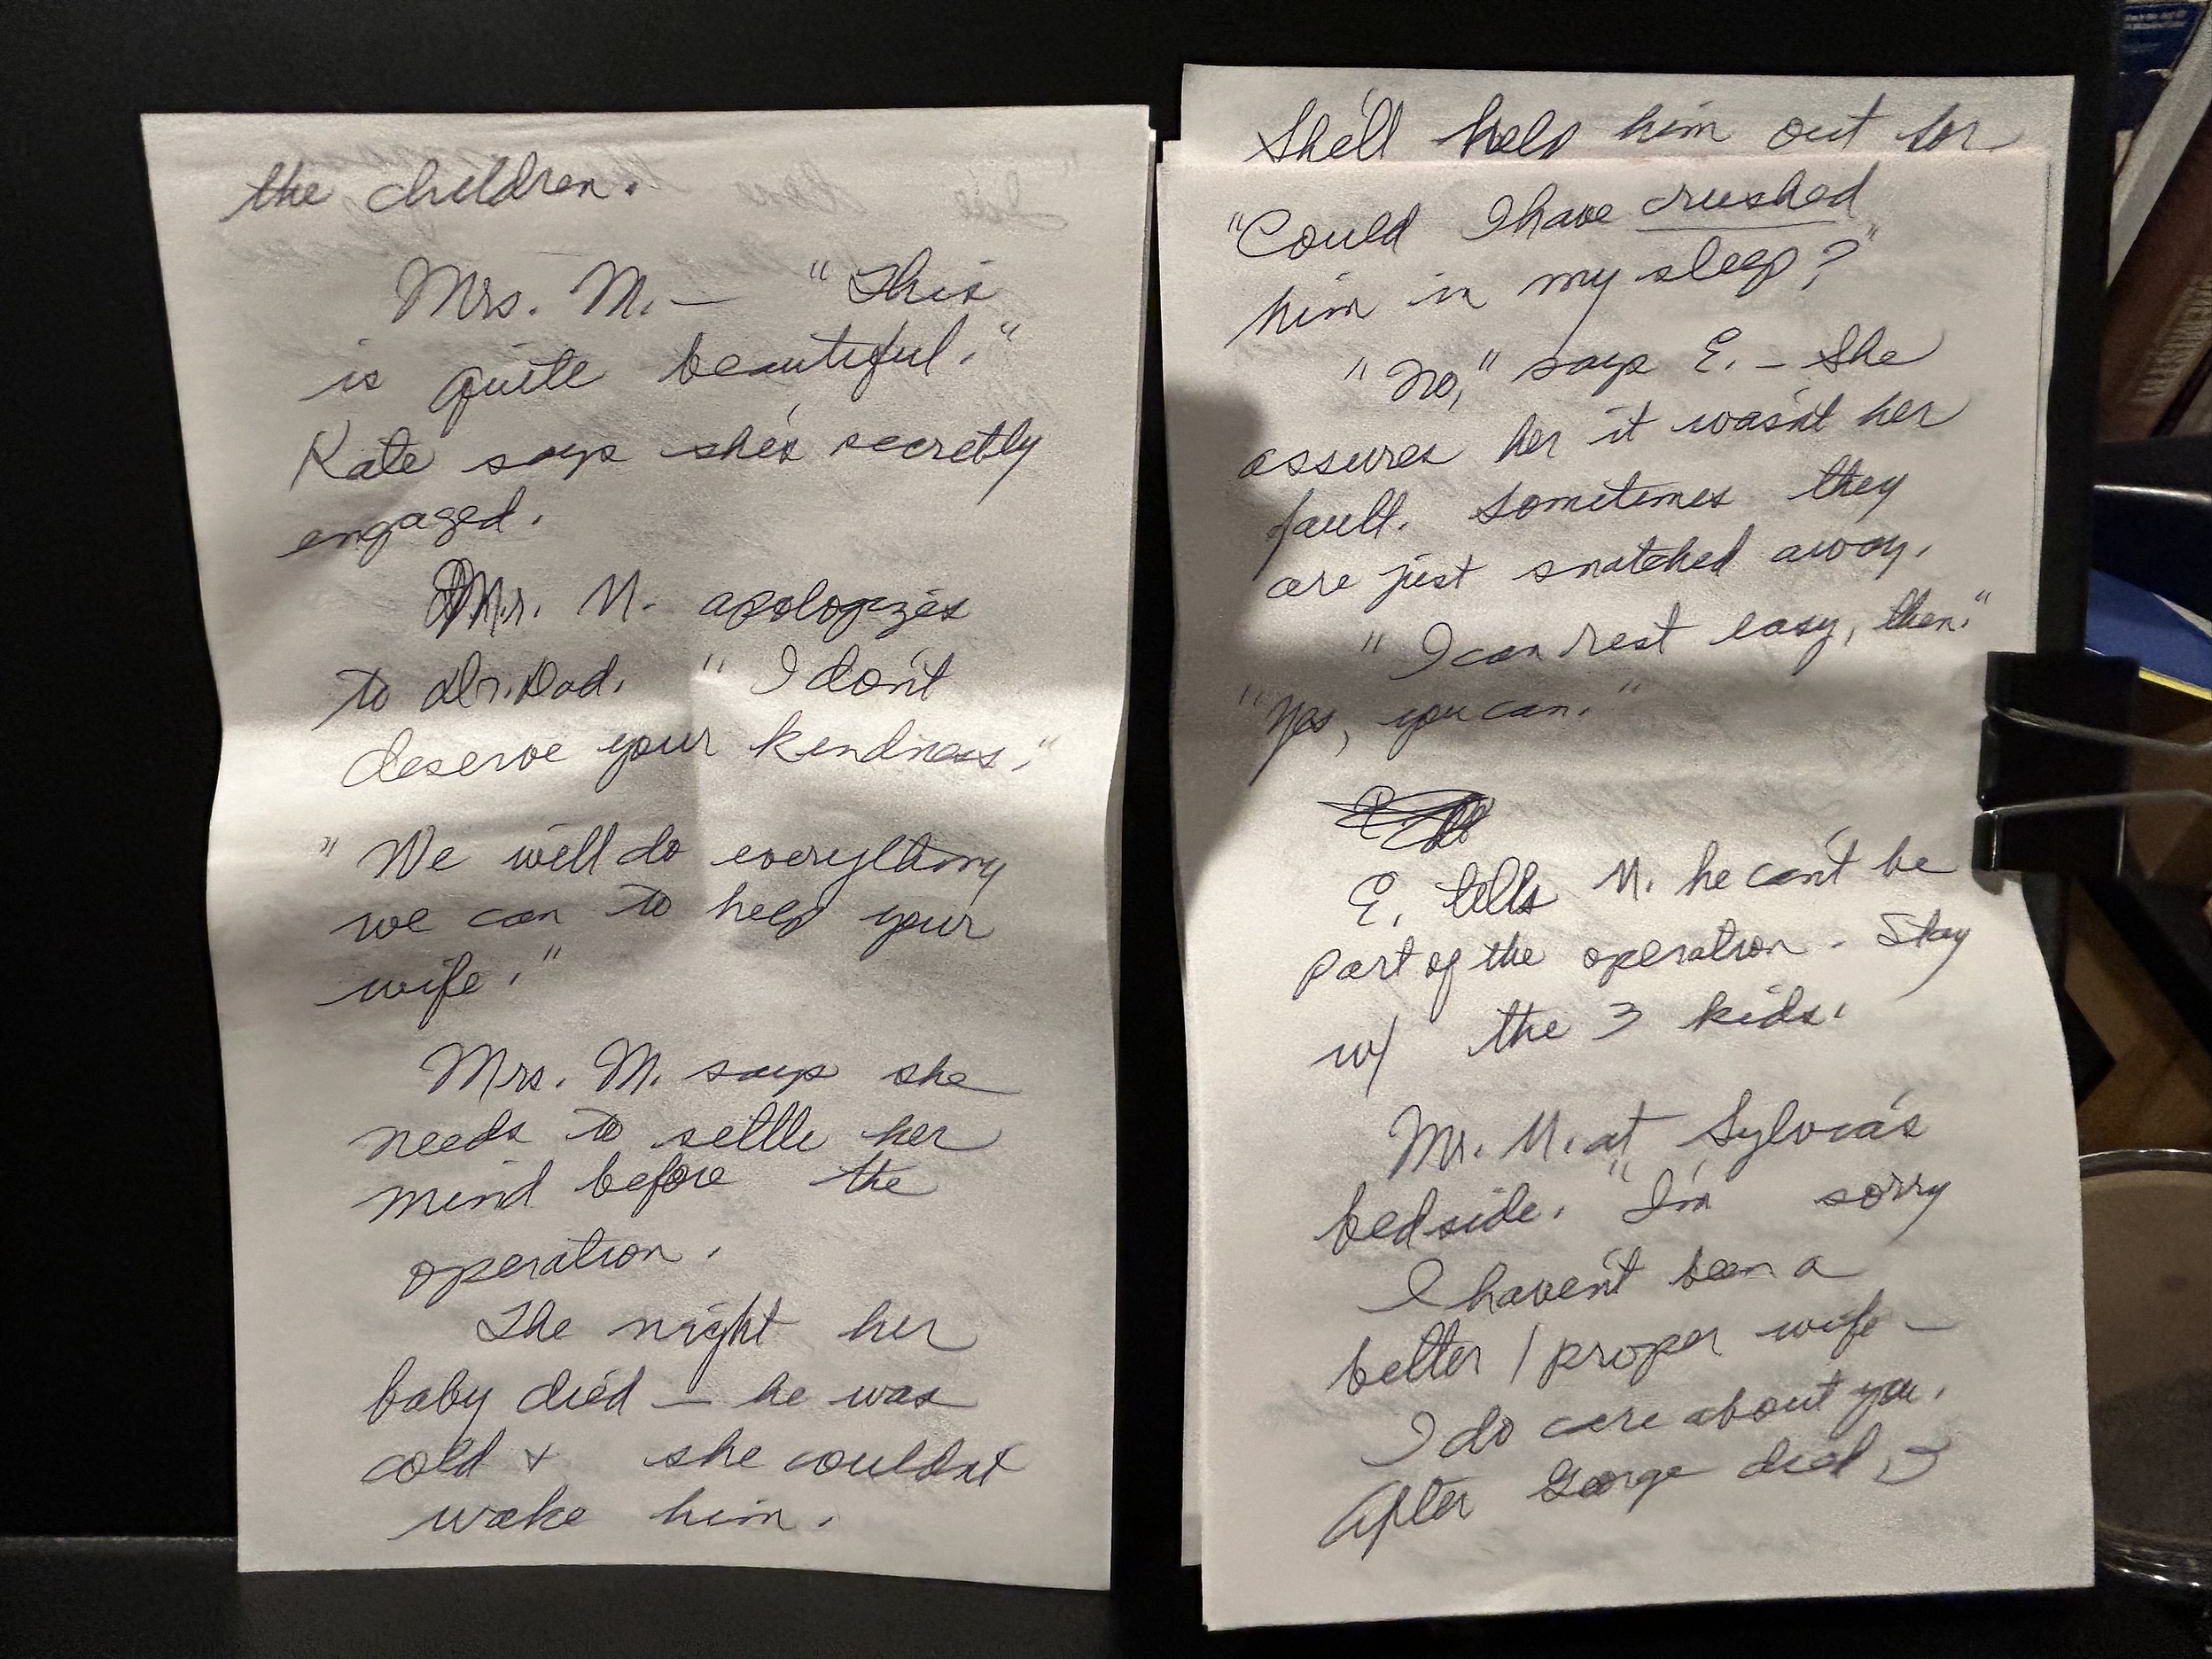 the children.
Mrs. M. — "This
is quite beautiful."
Kate says she's secretly
engaged.
Mr. M. apologizes
to Dr. Dad. "I don't
deserve your kindness."
"We will do everything
we can to help your
wife."
Mrs. M. says she
needs to settle her
mind before the
operation.
The night her
baby died — he was
cold & she couldn't
wake him.
She'll help him out for
"Could I have crushed
him in my sleep?"
"No," says E. - She
assures her it wasn't her
fault. Sometimes they
are just snatched away.
"I can rest easy, then."
"Yes, you can."
E. tells M. he can't be
part of the operation. Stay
w/ the 3 kids.
Mr. M. at Sylvia's
bedside. "I'm sorry
I haven't been a
better / proper wife -
I do care about you.
After George died,